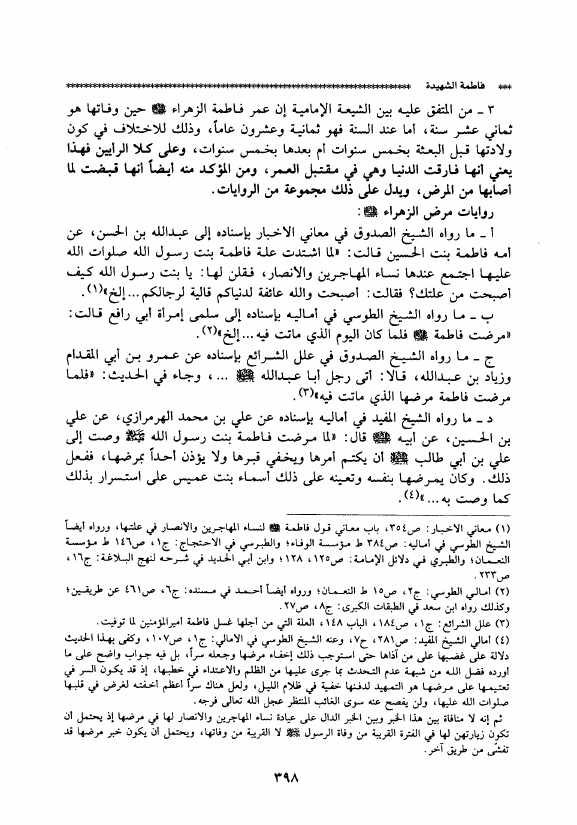 *** فاطمة الشهيدة ***
٣ ـ من المتفق عليه بين الشيعة الإمامية إن عمر فاطمة الزهراء ﷺ حين وفاتها هو
ثماني عشر سنة، أما عند السنة فهو ثمانية وعشرون عاماً، وذلك للاختلاف في كون
ولادتها قبل البعثة بخمس سنوات أم بعدها بخمس سنوات، وعلى كلا الرأيين فهذا
يعني أنها فارقت الدنيا وهي في مقتبل العمر، ومن المؤكد منه أيضاً أنها قبضت لما
أصابها من المرض، ويدل على ذلك مجموعة من الروايات.
روايات مرض الزهراء :
أ ـ ما رواه الشيخ الصدوق في معاني الاخبار بإسناده إلى عبدالله بن الحسن، عن
أمه فاطمة بنت الحسين قالت: «لما اشتدت علة فاطمة بنت رسول الله صلوات الله
عليها اجتمع عندها نساء المهاجرين والانصار، فقلن لها: يا بنت رسول الله كيف
أصبحت من علتك؟ فقالت: أصبحت والله عائفة لدنياكم قالية لرجالكم...إلخ»(١).
ب ـ ما رواه الشيخ الطوسي في أماليه بإسناده إلى سلمى إمرأة أبي رافع قالت:
«مرضت فاطمة فلما كان اليوم الذي ماتت فيه...إلخ»(٢).
ج ـ ما رواه الشيخ الصدوق في علل الشرائع بإسناده عن عمرو بن أبي المقدام
وزياد بن عبدالله، قالا: أتى رجل أبا عبدالله ...، وجاء في الحديث: «فلما
مرضت فاطمة مرضها الذي ماتت فيه»(٣).
د ـ ما رواه الشيخ المفيد في أماليه بإسناده عن علي بن محمد الهرمرازي، عن علي
بن الحسين، عن أبيه قال: «لما مرضت فاطمة بنت رسول الله ﷺ وصت إلى
علي بن أبي طالب أن يكتم أمرها ويخفي قبرها ولا يؤذن أحداً بمرضها، ففعل
ذلك. وكان يمرضها بنفسه وتعينه على ذلك أسماء بنت عميس على استسرار بذلك
كما وصت به...»(٤).
(١) معاني الاخبار: ص٣٥٤، باب معاني قول فاطمة لنساء المهاجرين والانصار في علتها، ورواه أيضاً
الشيخ الطوسي في أماليه: ص٣٨٤ ط مؤسسة الوفاء؛ والطبرسي في الاحتجاج: ج١، ص١٤٦ ط مؤسسة
النعمان؛ والطبري في دلائل الإمامة: ص١٢٥، ١٢٨؛ وابن أبي الحديد في شرحه لنهج البلاغة: ج١٦،
ص٢٣٣.
(٢) أمالي الطوسي: ج٢، ص١٥ ط النعمان؛ ورواه أيضاً أحمد في مسنده: ج٦، ص٤٦١ عن طريقين؛
وكذلك رواه ابن سعد في الطبقات الكبرى: ج٨، ص٢٧.
(٣) علل الشرائع: ج١، ص١٨٤، الباب ١٤٨، العلة التي من أجلها غسل فاطمة أميرالمؤمنين لما توفيت.
(٤) أمالي الشيخ المفيد: ص٢٨١، ح٧، وعنه الشيخ الطوسي في الامالي: ج١، ص١٠٧، وكفى بهذا الحديث
دلالة على غضبها على من آذاها حتى استوجب ذلك إخفاء مرضها وجعله سراً، بل فيه جواب واضح على ما
أورده فضل الله من شبهة عدم التحدث بما جرى عليها من الظلم والاعتداء في خطبها، إذ قد يكون السر في
تعتيمها على مرضها هو التمهيد لدفنها خفية في ظلام الليل، ولعل هناك سراً أعظم أخفته لغرض في قلبها
صلوات الله عليها، ولن يفصح عنه سوى الغائب المنتظر عجل الله تعالى فرجه.
ثم إنه لا منافاة بين هذا الخبر وبين الخبر الدال على عيادة نساء المهاجرين والانصار لها في مرضها إذ يحتمل أن
تكون زيارتهن لها في الفترة القريبة من وفاة الرسول ﷺ لا القريبة من وفاتها، ويحتمل أن يكون خبر مرضها قد
تفشّى من طريق آخر.
٣٩٨